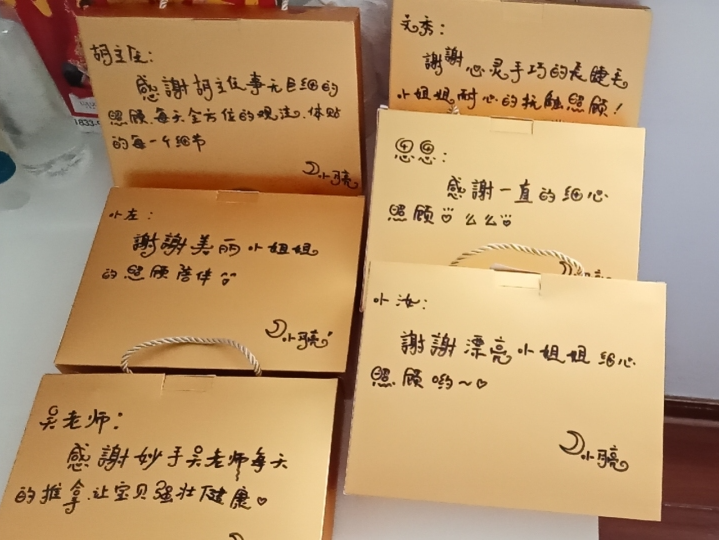 胡主任:
感謝胡主任事无巨细的
照顾.每天全方位的观注.体贴
的每一个细节
小亮
小左:
謝謝美丽小姐姐
的照顾陪伴
小亮
吴老师:
感謝妙手吴老师每天
的推拿.让宝贝强壮健康♡
秀:
謝謝心灵手巧的长睫毛
小姐姐耐心的抚触照顾!
恩恩:
感謝一直的细心
照顾 么么
小汝:
謝謝漂亮小姐姐细心
照顾哟~♡
小亮
1833.